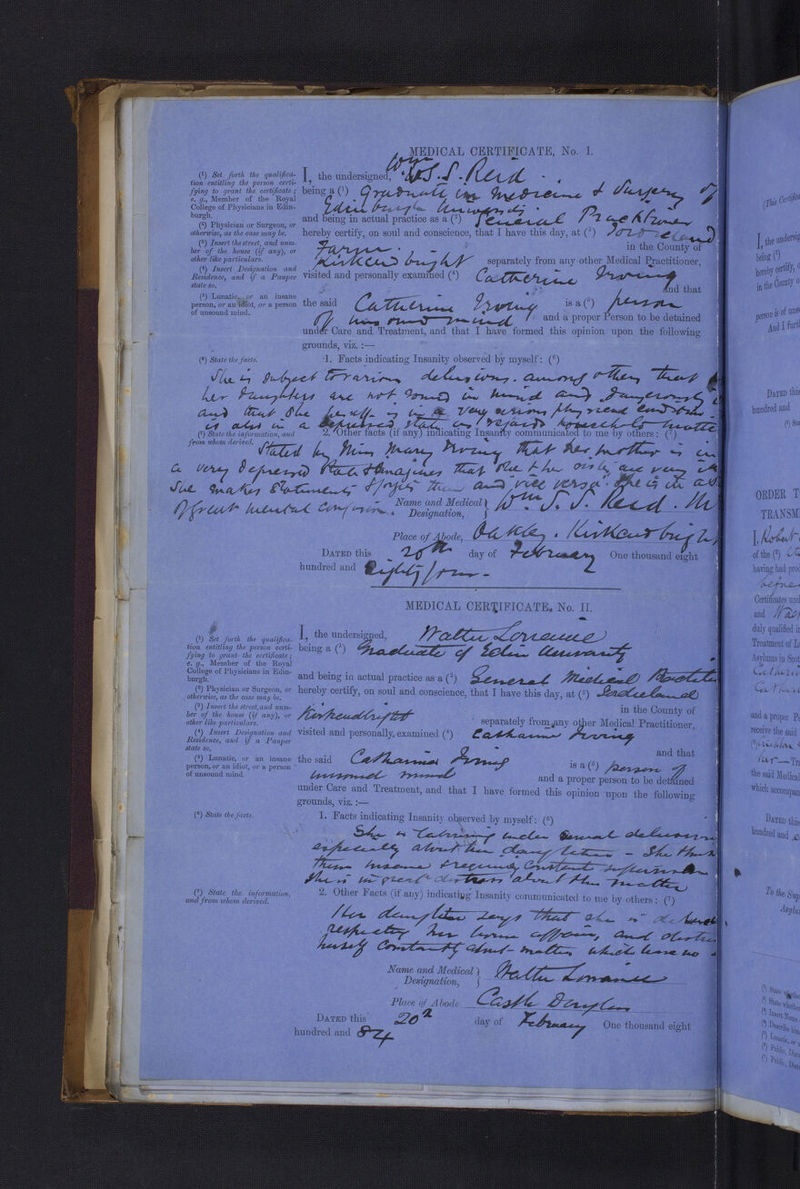 MEDICAL CERTIFICATE, No. I.
(¹) Set forth the qualifica-
tion entitling the person certi-
fying to grant the certificate;
e. g., Member of the Royal
College of Physicians in Edin-
burgh.
(²) Physician or Surgeon, or
otherwise, as the case may be.
(³) Insert the street, and num-
ber of the house (if any), or
other like particulars.
(⁴) Insert Designation and
Residence, and if a Pauper
state so.
(⁵) Lunatic, or an insane
person, or an idiot, or a person
of unsound mind.
I, the undersigned, Wm S. S. Reid
being a (¹) Graduate in Medicine & Surgery of
Edinburgh University
and being in actual practice as a (²) General Practitioner
hereby certify, on soul and conscience, that I have this day, at (³)
Farm in the County of
Kirkcudbright separately from any other Medical Practitioner,
visited and personally examined (⁴) Catherine Irving
and that
the said Catherine Irving is a (⁵) person
of unsound mind and a proper Person to be detained
under Care and Treatment, and that I have formed this opinion upon the following
grounds, viz. :—
(⁶) State the facts.
1. Facts indicating Insanity observed by myself: (⁶)
She is subject to various delusions. among others that
her daughters are not sound in mind and dangerously
and that she herself is in a very serious physical condition.
is also in a depressed state as regards household matte
(⁷) State the information, and
from whom derived.
2. Other facts (if any) indicating Insanity communicated to me by others: (⁷)
Stated by Miss Mary Irving that her mother is in
a very depressed state & imagines that she & her are very
She makes statements & forgets them and vice versa. She is in a
of great mental confusion.
Name and Medical Designation, Wm. S. S. Reid. M
Place of Abode, Oakley. Kirkcudbright
DATED this 20th day of February One thousand eight
hundred and Eighty four
MEDICAL CERTIFICATE, No. II.
(¹) Set forth the qualifica-
tion entitling the person certi-
fying to grant the certificate;
e. g., Member of the Royal
College of Physicians in Edin-
burgh.
(²) Physician or Surgeon, or
otherwise, as the case may be.
(³) Insert the street, and num-
ber of the house (if any), or
other like particulars.
(⁴) Insert Designation and
Residence, and if a Pauper
state so.
(⁵) Lunatic, or an insane
person, or an idiot, or a person
of unsound mind
I, the undersigned, Walter Lorraine
being a (¹) Graduate of Edin University
and being in actual practice as a (²) General Medical Practiti
hereby certify, on soul and conscience, that I have this day, at (³)
in the County of
Kirkcudbright separately from any other Medical Practitioner,
visited and personally examined (⁴) Catharine Irving
and that
the said Catharine Irving is a (⁵) person of
unsound mind and a proper person to be detained
under Care and Treatment, and that I have formed this opinion upon the following
grounds, viz. :—
(⁶) State the facts.
1. Facts indicating Insanity observed by myself: (⁶)
She is labouring under several delusions
especially about her daughters - She thinks
them insane & requiring constant supervision
She is in great distress about the matter
(⁷) State the information,
and from whom derived.
2. Other Facts (if any) indicating Insanity communicated to me by others: (⁷)
Her daughter says that she is
respecting her home affairs, and
herself constantly about matters which have no
Name and Medical Designation, Walter Lorraine
Place of Abode Castle Douglas
DATED this 20th day of February One thousand eight
hundred and 84
(This Certific
I, the undersig
being (¹)
hereby certify,
in the County o
person is of uns
And I furt
DATED this
hundred and
ORDER T
TRANSM
I, Robert
of the (²)
having had pro
before
Certificates und
and
duly qualified i
Treatment of L
Asylums in Scot
and a proper Pe
receive the said
the said Medical
which accompan
DATED this
hundred and
To the Sup
Asylu